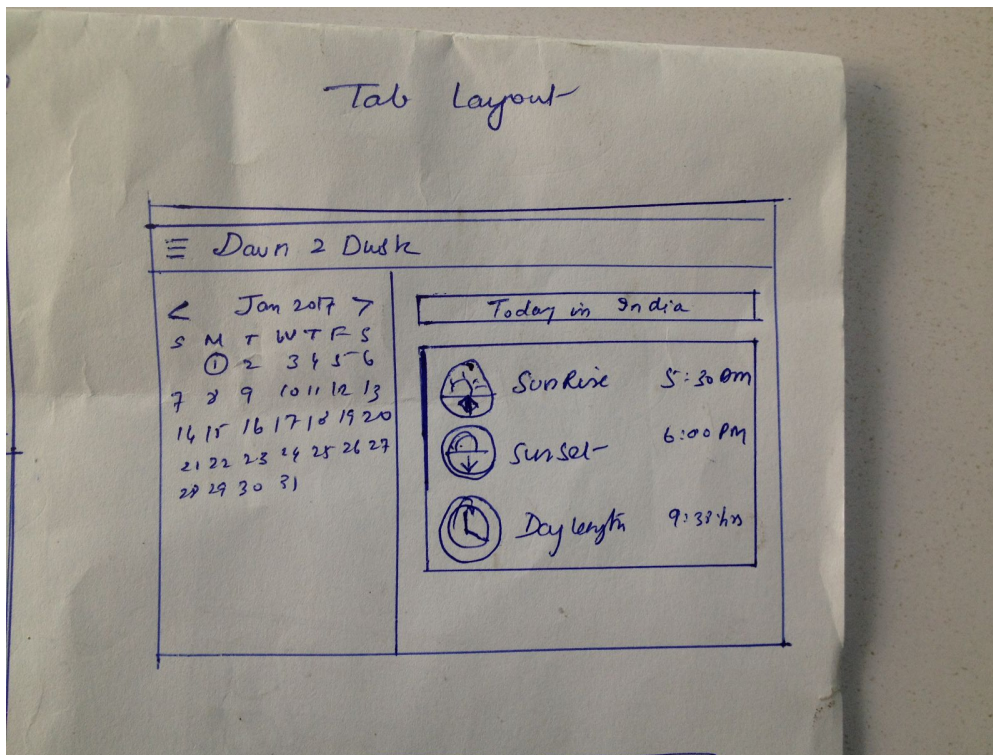 Tab Layout
Dawn 2 Dusk
< Jan 2017 >
S M T W T F S
1 2 3 4 5 6
7 8 9 10 11 12 13
14 15 16 17 18 19 20
21 22 23 24 25 26 27
28 29 30 31
Today in India
SunRise 5:30 am
Sunset 6:00 PM
Day length 9:38 hrs